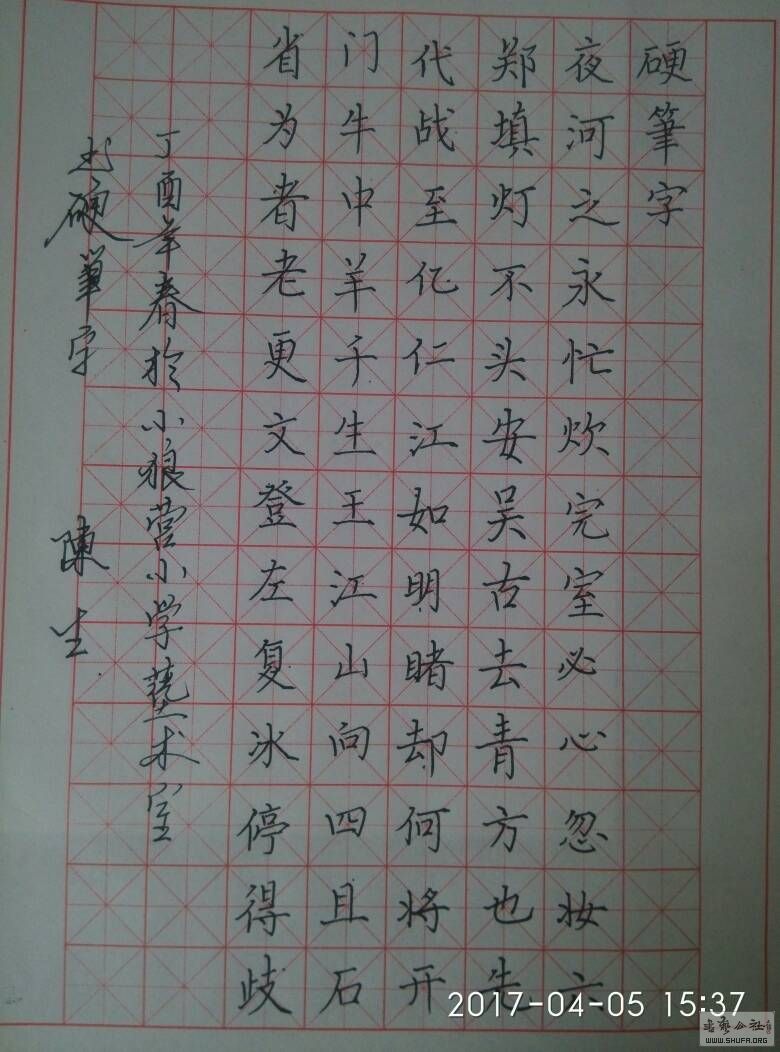 硬筆字
夜河之永忙炊完室必心忽妆六
郑填灯不头安吴古去青方也先
代战至亿仁江如明睹却何将开
门牛中羊千生王江山向四且石
省为者老更文登左复冰停得歧
丁酉年春於小狼营小学艺术室
书硬筆字 陳生
2017-04-05 15:37
书艺公社
WWW.SHUFA.ORG